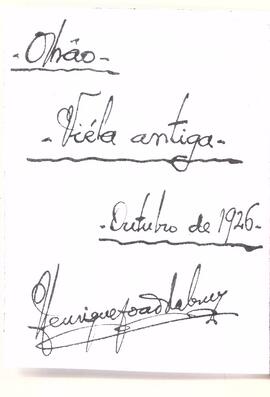 - Olhão -
- Viéla antiga -
- Outubro de 1926 -
Henrique João da Cruz